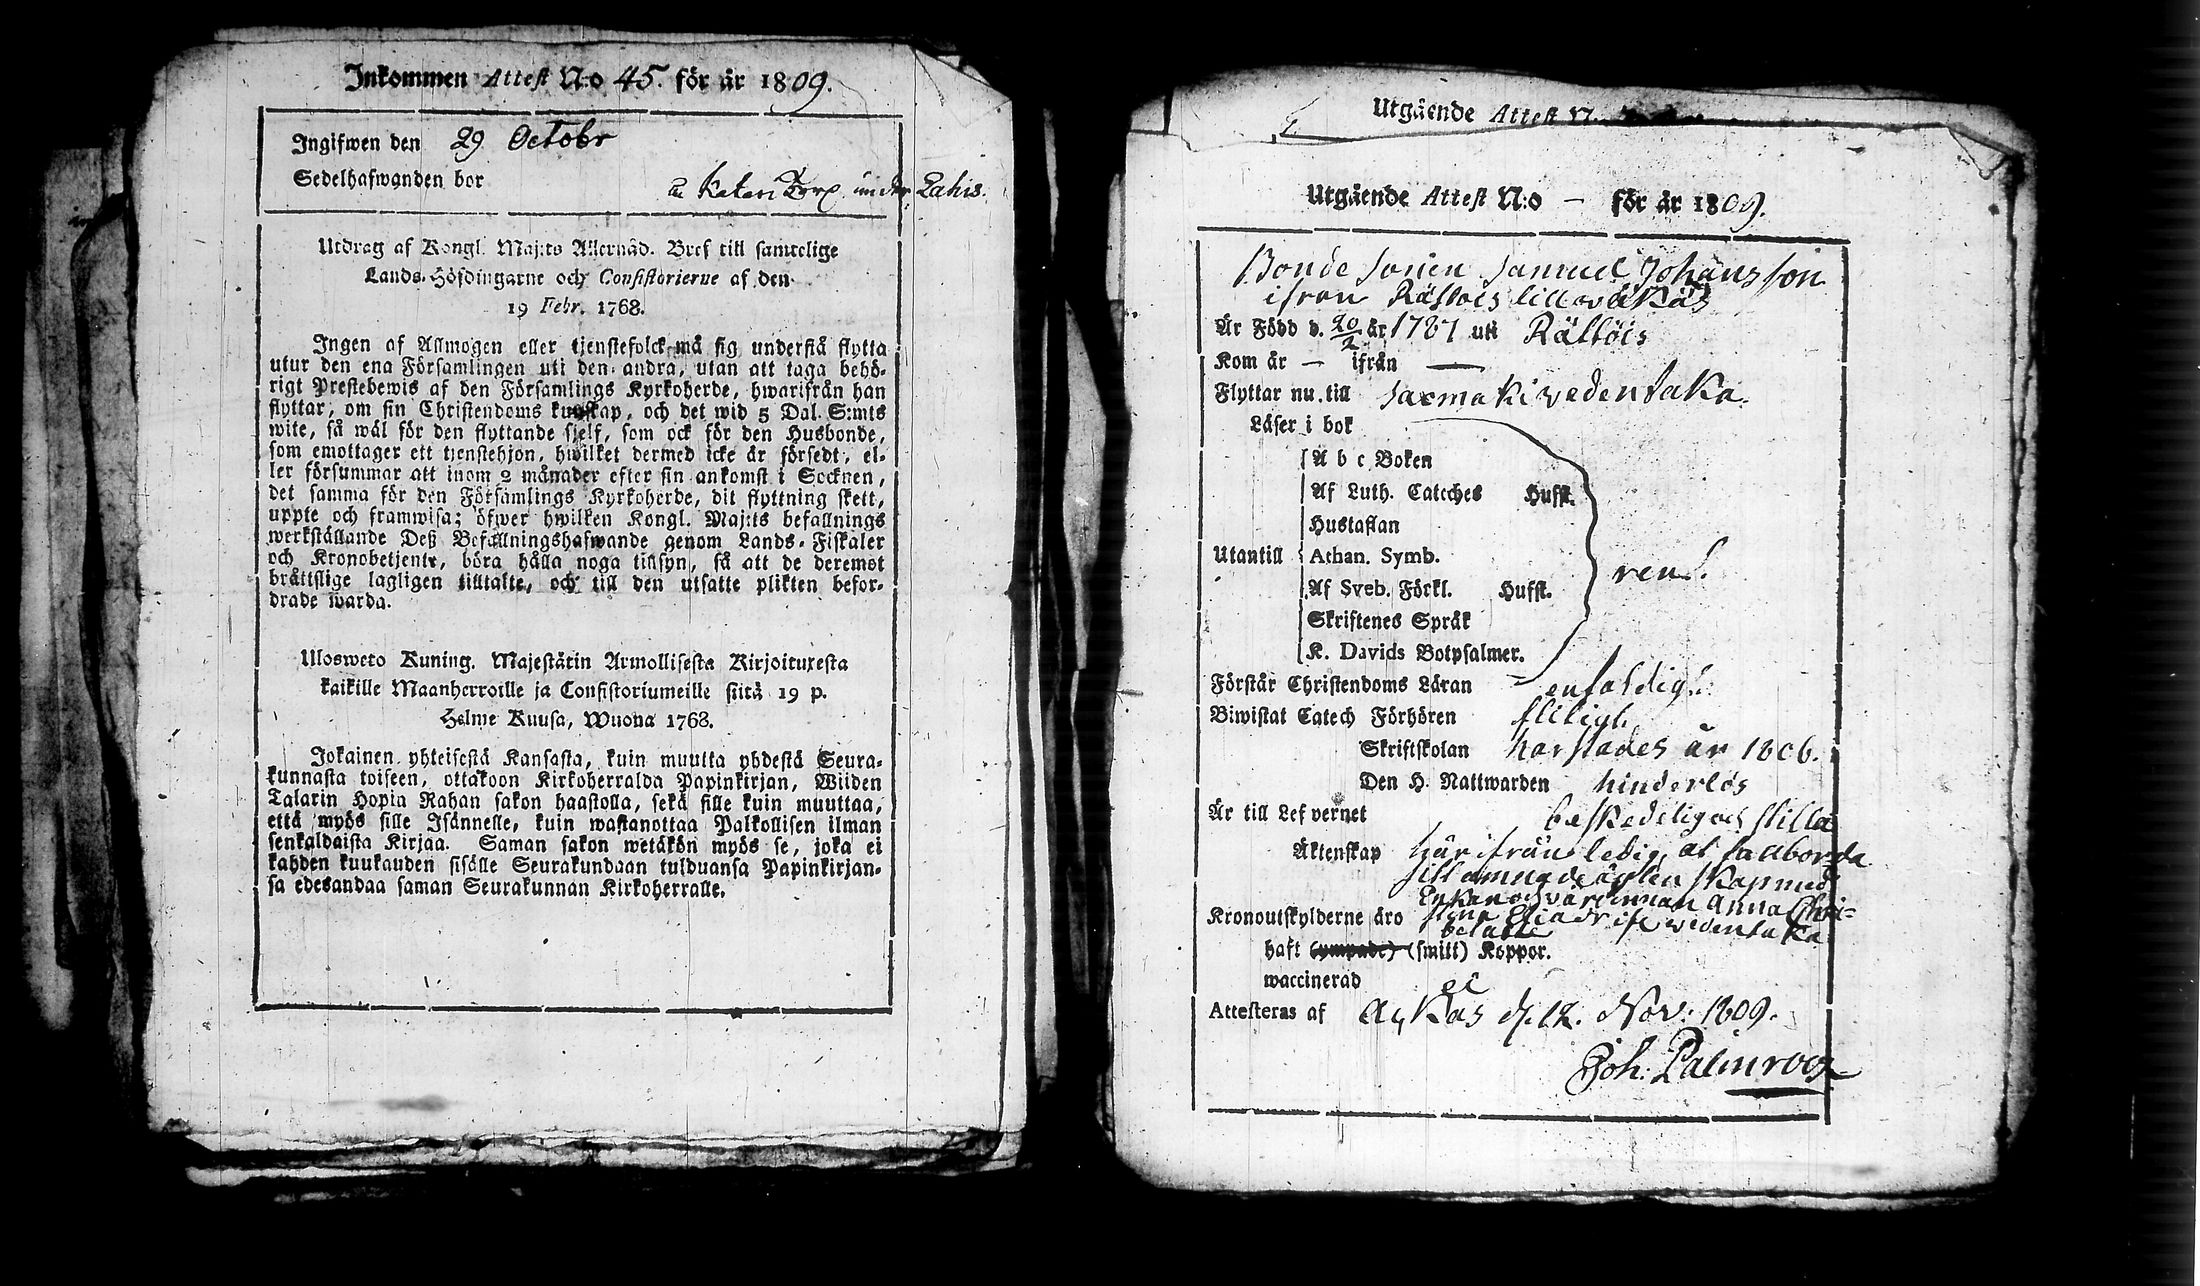 Inkommen Attest N:o 45. för år 1809.
Ingifwen den 29 Octobr
Sedelhafwanden bor Kateri Torp under Lahis.
Utdrag af Kongl. Maj:ts Allernåd. Bref till samtelige
Lands-Höfdingarne och Consistorierne af den
19 Febr. 1768.
Ingen af Allmogen eller tjenstefolck må sig understå flytta
utur den ena Församlingen uti den andra, utan att taga behö-
rigt Prestebewis af den Församlings Kyrkoherde, hwarifrån han
flyttar, om sin Christendoms kunskap, och det wid 5 Dal. S:mts
wite, så wäl för den flyttande sjelf, som ock för den Husbonde,
som emottager ett tjenstehjon, hwilket dermed icke är försedt, el-
ler försummar att inom 2 månader efter sin ankomst i Socknen,
det samma för den Församlings Kyrkoherde, dit flyttning skett,
uppte och framwisa; öfwer hwilken Kongl. Maj:ts befallnings
werkställande Deß Befallningshafwande genom Lands-Fiskaler
och Kronobetjente, böra hålla noga tillsyn, så att de deremot
bråttslige lagligen tilltalte, och till den utsatte plikten befor-
drade warda.
Ulosweto Kuning. Majestätin Armollisesta Kirjoituxesta
kaikille Maanherroille ja Consistoriumeille siitä 19 p.
Helme Kuusa, Wuona 1768.
Jokainen yhteisestä Kansasta, kuin muutta yhdestä Seura-
kunnasta toiseen, ottakoon Kirkoherralda Papinkirjan, Wiiden
Talarin Hopia Rahan sakon haastolla, sekä sille kuin muuttaa,
että myös sille Isännelle, kuin wastanottaa Palkollisen ilman
senkaldaista Kirjaa. Saman sakon wetäkön myös se, joka ei
kahden kuukauden sisälle Seurakundaan tulduansa Papinkirjan-
sa edesandaa saman Seurakunnan Kirkoherralle.
Utgående Attest N.
Utgående Attest N:o — för år 1809.
Bonde sonen Samuel Johansson
ifrån
År Född d. 20/2 år 1787 uti Rättöis
Kom år — ifrån —
Flyttar nu till Sarmaki wedentaka.
Läser i bok
A b c Boken
Af Luth. Cateches Hufst.
Hustaflan
Utantill Athan. Symb.
Af Sveb. Förkl. Hufst.
Skriftenes Språk
K. Davids Botpsalmer.
rent.
Förstår Christendoms Läran enfaldigt.
Biwistat Catech Förhören flitigt
Skriftskolan har stades år 1806.
Den H. Nattwarden hinderlös
Är till Lefvernet beskedelig och stilla
Äktenskap härifrån ledig, at fullborda
sitt ämnade äktenskap med
Enkan och värdinnan Anna Chri-
Kronoutskylderne äro stina
betalte
haft (ympade) (smitt) Koppor.
waccinerad ej
Attesteras af Aukas d. 12. Nov. 1809.
Joh. Palmroos